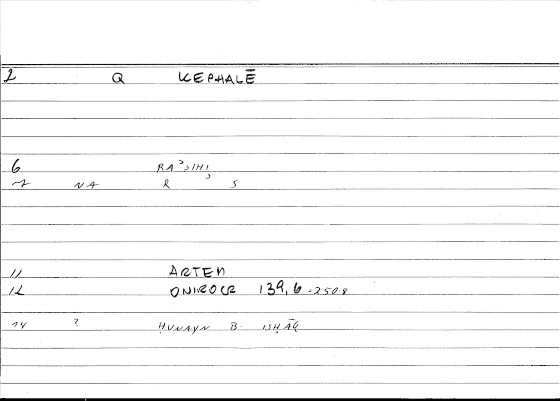 2 Q KEPHALĒ
6 RAʾSIHI
7 NA R S
11 ARTEM
12 ONIROCR 139,6 = 250.8
14 ? ḤUNAYN B. ISḤĀQ